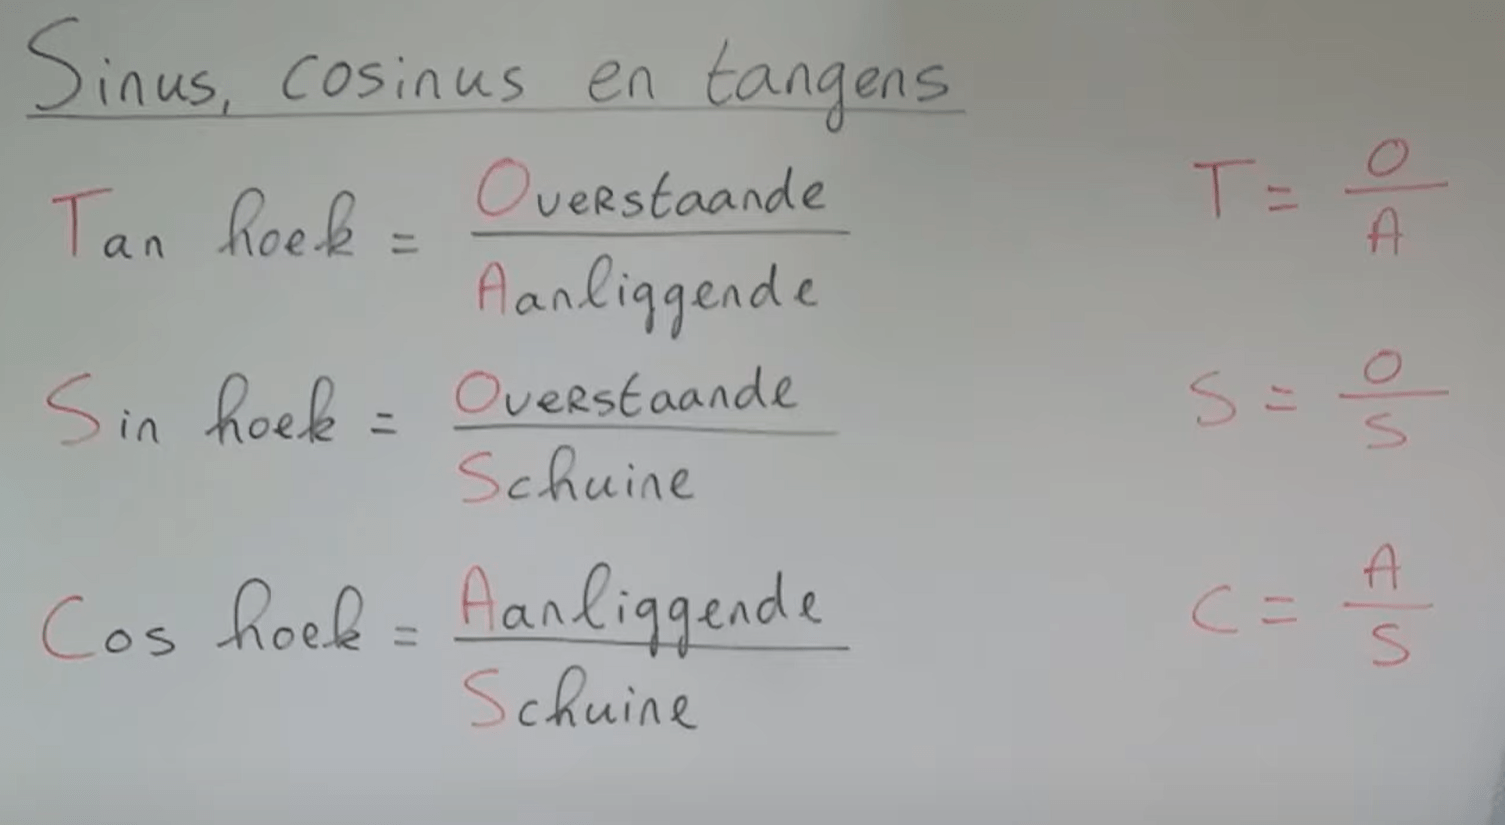 Sinus, cosinus en tangens
Tan hoek = Overstaande / Aanliggende
T = O / A
Sin hoek = Overstaande / Schuine
S = O / S
Cos hoek = Aanliggende / Schuine
C = A / S